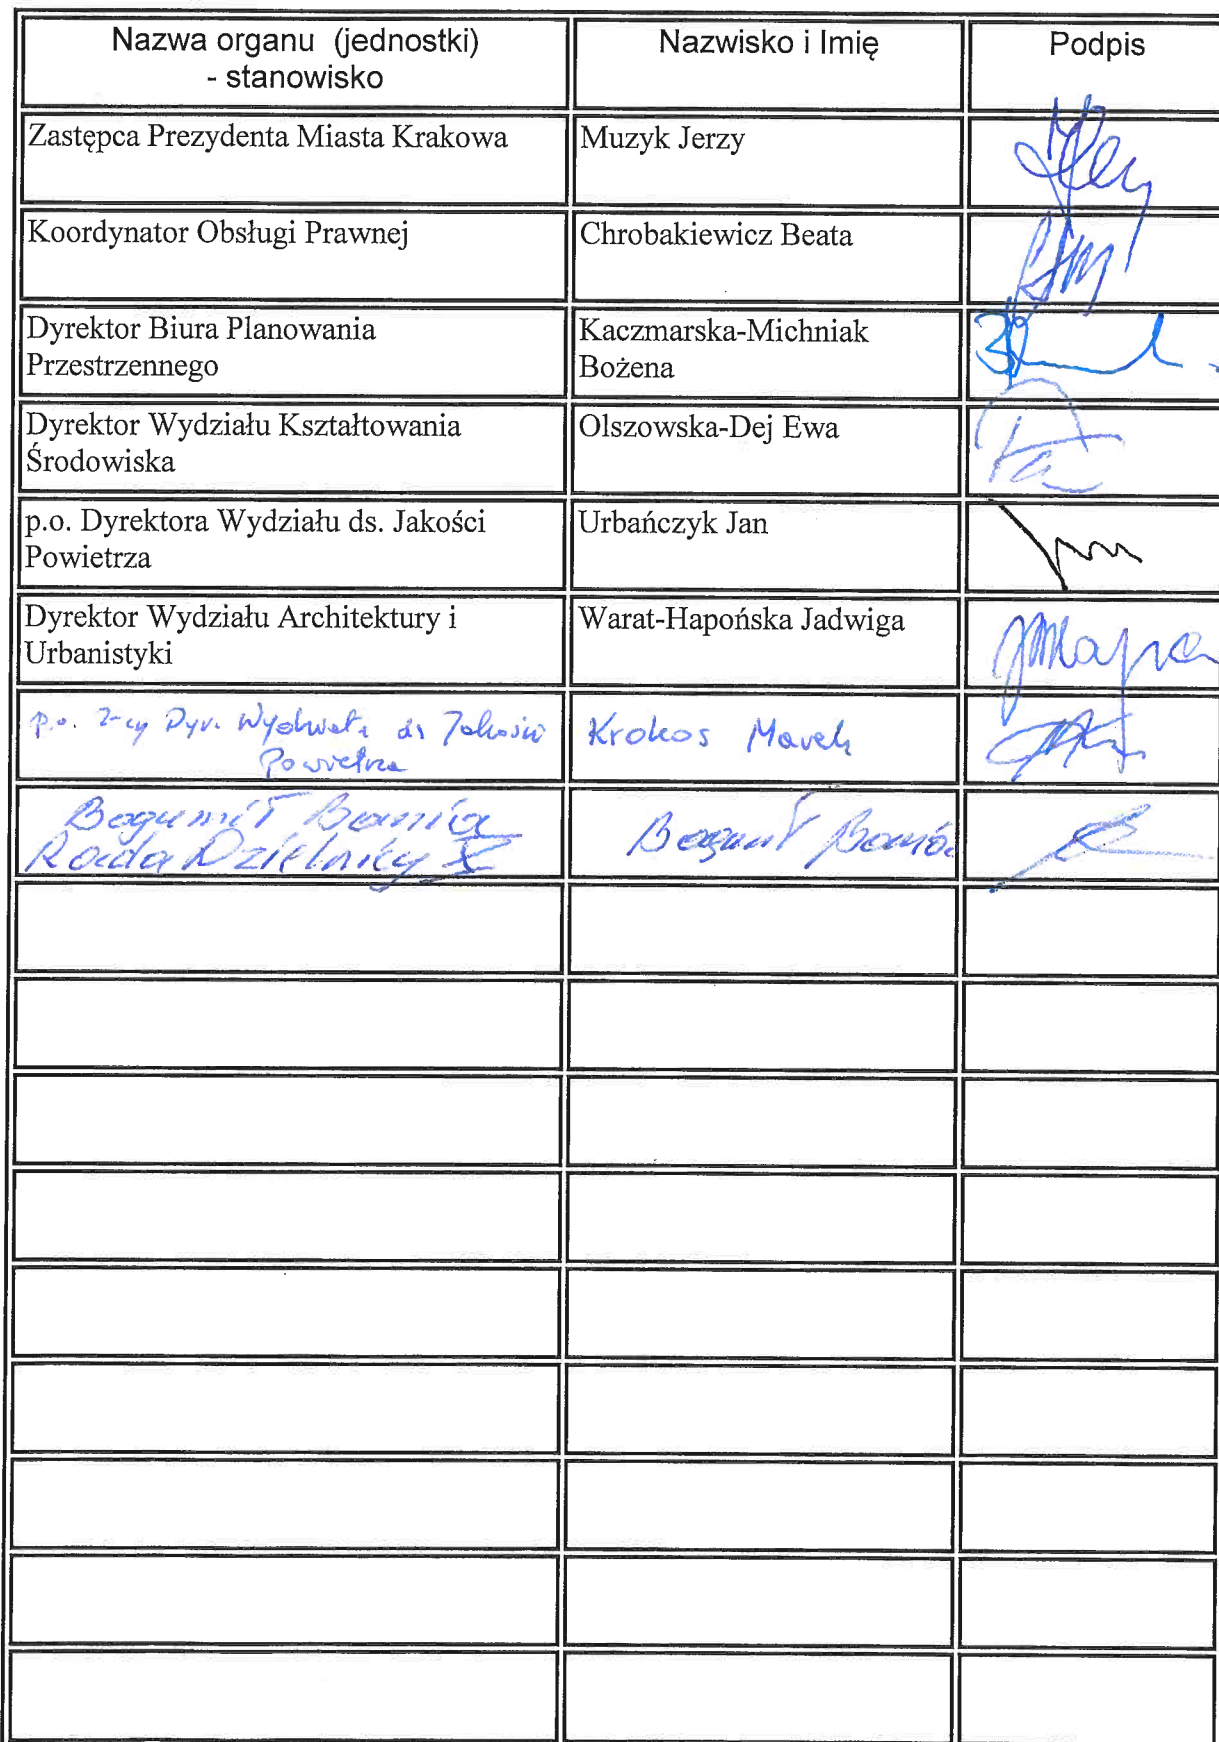 Nazwa organu (jednostki)
- stanowisko
Nazwisko i Imię
Podpis
Zastępca Prezydenta Miasta Krakowa
Muzyk Jerzy
Koordynator Obsługi Prawnej
Chrobakiewicz Beata
Dyrektor Biura Planowania
Przestrzennego
Kaczmarska-Michniak
Bożena
Dyrektor Wydziału Kształtowania
Środowiska
Olszowska-Dej Ewa
p.o. Dyrektora Wydziału ds. Jakości
Powietrza
Urbańczyk Jan
Dyrektor Wydziału Architektury i
Urbanistyki
Warat-Hapońska Jadwiga
p.o. Z-cy Dyr. Wydziału ds Jakości
Powietrza
Krokos Marek
Bogumił
Rada Dzielnicy X